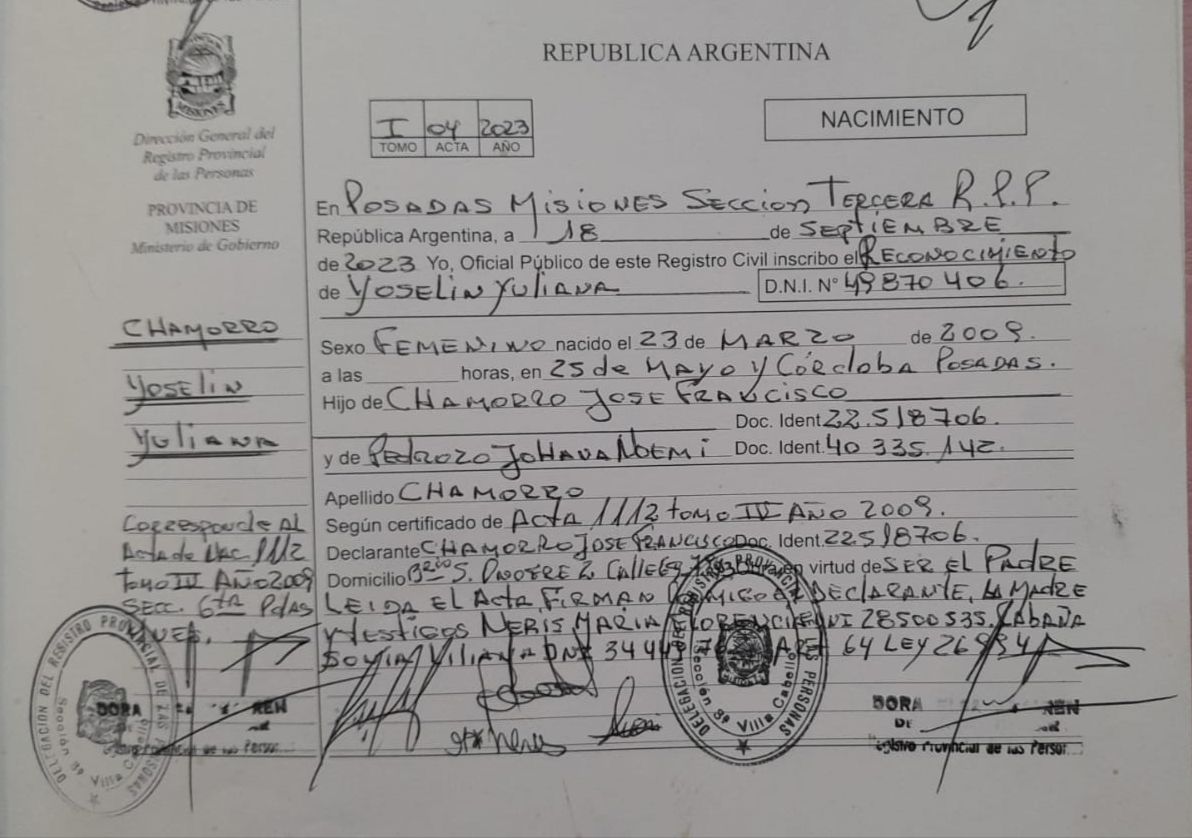 REPUBLICA ARGENTINA
MISIONES
Dirección General del
Registro Provincial
de las Personas
PROVINCIA DE
MISIONES
Ministerio de Gobierno
I 04 2023
TOMO ACTA AÑO
NACIMIENTO
En POSADAS MISIONES SECCION TERCERA R.P.P.
República Argentina, a 18 de SEPTIEMBRE
de 2023 Yo, Oficial Público de este Registro Civil inscribo el RECONOCIMIENTO
de YOSELIN YULIANA D.N.I. Nº 49870 406.
CHAMORRO
YOSELIN
YULIANA
Sexo FEMENINO nacido el 23 de MARZO de 2009.
a las horas, en 25 de MAYO y CÓRDOBA POSADAS.
Hijo de CHAMORRO JOSE FRANCISCO
Doc. Ident. 22.518706.
y de PEDROZO JOHANA NOEMI Doc. Ident. 40 335.142.
Apellido CHAMORRO
Según certificado de Acta 1112 tomo IV AÑO 2009.
Declarante CHAMORRO JOSE FRANCISCO Doc. Ident. 22518706.
Domicilio en virtud de SER EL PADRE
LEIDA EL Acta, FIRMAN CONMIGO EL DECLARANTE, LA MADRE
y testigos NERIS MARIA 28500535.
ART 64 LEY 26994
Corresponde AL
Acta de Nac. 1112
tomo IV AÑO 2009
SECC. 6ta Pdas
DELEGACION DEL REGISTRO PROVINCIAL DE LAS PERSONAS
Sección 3ª Villa Cabello
DORA
DELEGACION DEL REGISTRO PROVINCIAL DE LAS PERSONAS
Sección 3ª Villa Cabello
DORA
DE